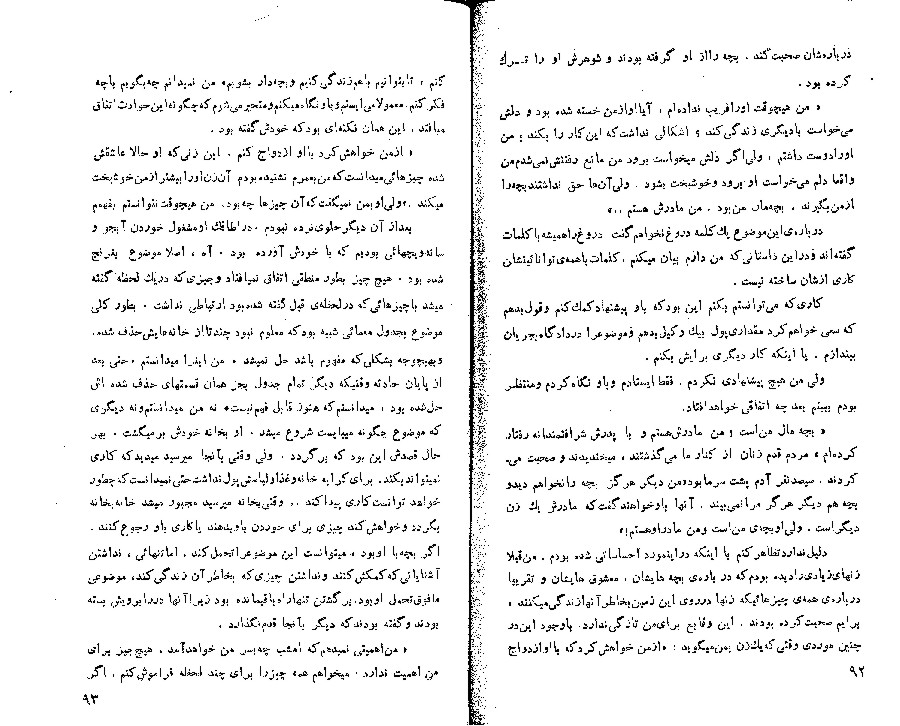 درباره‌شان صحبت کند . بچه را از او گرفته بودند و شوهرش او را تسرك
کرده بود .
« من هیچوقت او را فریب نداده‌ام ، آیا او از من خسته شده بود و دلش
می‌خواست با دیگری زندگی کند ؛ اشکالی نداشت که این کار را بکند ؛ من
او را دوست داشتم ، ولی اگر دلش میخواست برود من مانع رفتنش نمی‌شدم من
واقعا دلم می‌خواست او برود و خوشبخت بشود . ولی آن‌ها حق نداشتند بچه را
از من بگیرند . بچه‌مال من بود . من مادرش هستم ..»
درباره‌ی این موضوع یك کلمه دروغ نخواهم گفت دروغ را همیشه با کلمات
گفته‌اند و در این داستانی که من دارم بیان میکنم ، کلمات با همه‌ی توانائیشان
کاری ازشان ساخته نیست .
کاری که می‌توانستم بکنم این بود که باو پیشنهاد کمك کنم و قول بدهم
که سعی خواهم کرد مقداری پول بیك وکیل بدهم و موضوع را در دادگاه بجریان
بیندازم . یا اینکه کار دیگری برایش بکنم .
ولی من هیچ پیشنهادی نکردم . فقط ایستادم و باو نگاه کردم و منتظر
بودم ببینم بعد چه اتفاقی خواهد افتاد.
« بچه مال من است ؛ من مادرش هستم و با پدرش شرافتمندانه رفتار
کرده‌ام » مردم قدم زنان از کنار ما می‌گذشتند ، میخندیدند و صحبت می‌
کردند . سیصد نفر آدم پشت سر ما بود «من دیگر هرگز بچه را نخواهم دید و
بچه هم دیگر هرگز مرا نمی‌بیند . آنها باو خواهند گفت که مادرش یك زن
دیگر است . ولی او بچه‌ی من است و من مادر او هستم!»
دلیل ندارد تظاهر کنم یا اینکه در اینمورد احساساتی شده بودم . من قبلا
زنهای زیادی را دیده بودم که در باره‌ی بچه هایشان ، معشوق هایشان و تقریبا
درباره‌ی همه‌ی چیزهائیکه زنها در روی این زمین بخاطر آنها زندگی میکنند ،
برایم صحبت کرده بودند . این وقایع برای من تازگی ندارد. با وجود این در
چنین موردی وقتی که یك زن بمن میگوید : «از من خواهش کرد که با او ازدواج
۹۲
کنم ، تا بتوانیم باهم زندگی کنیم و بچه‌دار بشویم» من نمیدانم چه بگویم یا چه
فکر کنم. معمولا می‌ایستم و باو نگاه میکنم و متحیر می‌شوم که چگونه این حوادث اتفاق
میافتد ، این همان نکته‌ای بود که خودش گفته بود .
« از من خواهش کرد با او ازدواج کنم . این زنی که او حالا عاشقش
شده چیزهائی میدانست که من بعمرم نشنیده بودم آن زن او را بیشتر از من خوشبخت
میکند .»ولی او بمن نمیگفت که آن چیزها چه بود. من هیچوقت نتوانستم بفهمم
بعد از آن دیگر جلوی نرده نبودم . در اطاقك او مشغول خوردن آبجو و
ساندویچهائی بودیم که با خودش آورده بود . آه ، اصلا موضوع بغرنج
شده بود . هیچ چیز بطور منطقی اتفاق نمیافتاد و چیزی که در یك لحظه گفته
میشد با چیزهائی که در لحظه‌ی قبل گفته شده بود ارتباطی نداشت . بطور کلی
موضوع بجدول معمائی شبیه بود که معلوم نبود چند تا از خانه‌هایش حذف شده،
و بهیچوجه بشکلی که مفهوم باشد حل نمیشد . من اینرا میدانستم . حتی بعد
از پایان حادثه وقتیکه دیگر تمام جدول بجز همان قسمتهای حذف شده اش
حل شده بود ، میدانستم که هنوز قابل فهم نیست» نه من میدانستم و نه دیگری
که موضوع چگونه میبایست شروع میشد . او بخانه خودش بر میگشت . بهر
حال قصدش این بود که برگردد . ولی وقتی بآنجا میرسید میدید که کاری
نمیتواند بکند. برای کرایه خانه و غذا و لباسش پول نداشت حتی نمیدانست که چطور
خواهد توانست کاری پیدا کند .. وقتی بخانه میرسید مجبور میشد خانه بخانه
بگردد و خواهش کند چیزی برای خوردن باو بدهند یا کاری باو رجوع کنند .
اگر بچه با او بود ، میتوانست این موضوع را تحمل کند . اما تنهائی ، نداشتن
آشنایانی که کمکش کنند و نداشتن چیزی که بخاطر آن زندگی کند، موضوعی
مافوق تحمل او بود. برگشتن تنها راه باقیمانده بود زیرا آنها در را برویش بسته
بودند و گفته بودند که دیگر بآنجا قدم نگذارد .
« من اهمیتی نمیدهم که امشب چه بسر من خواهد آمد . هیچ چیز برای
من اهمیت ندارد . میخواهم همه چیز را برای چند لحظه فراموش کنم . اگر
۹۳